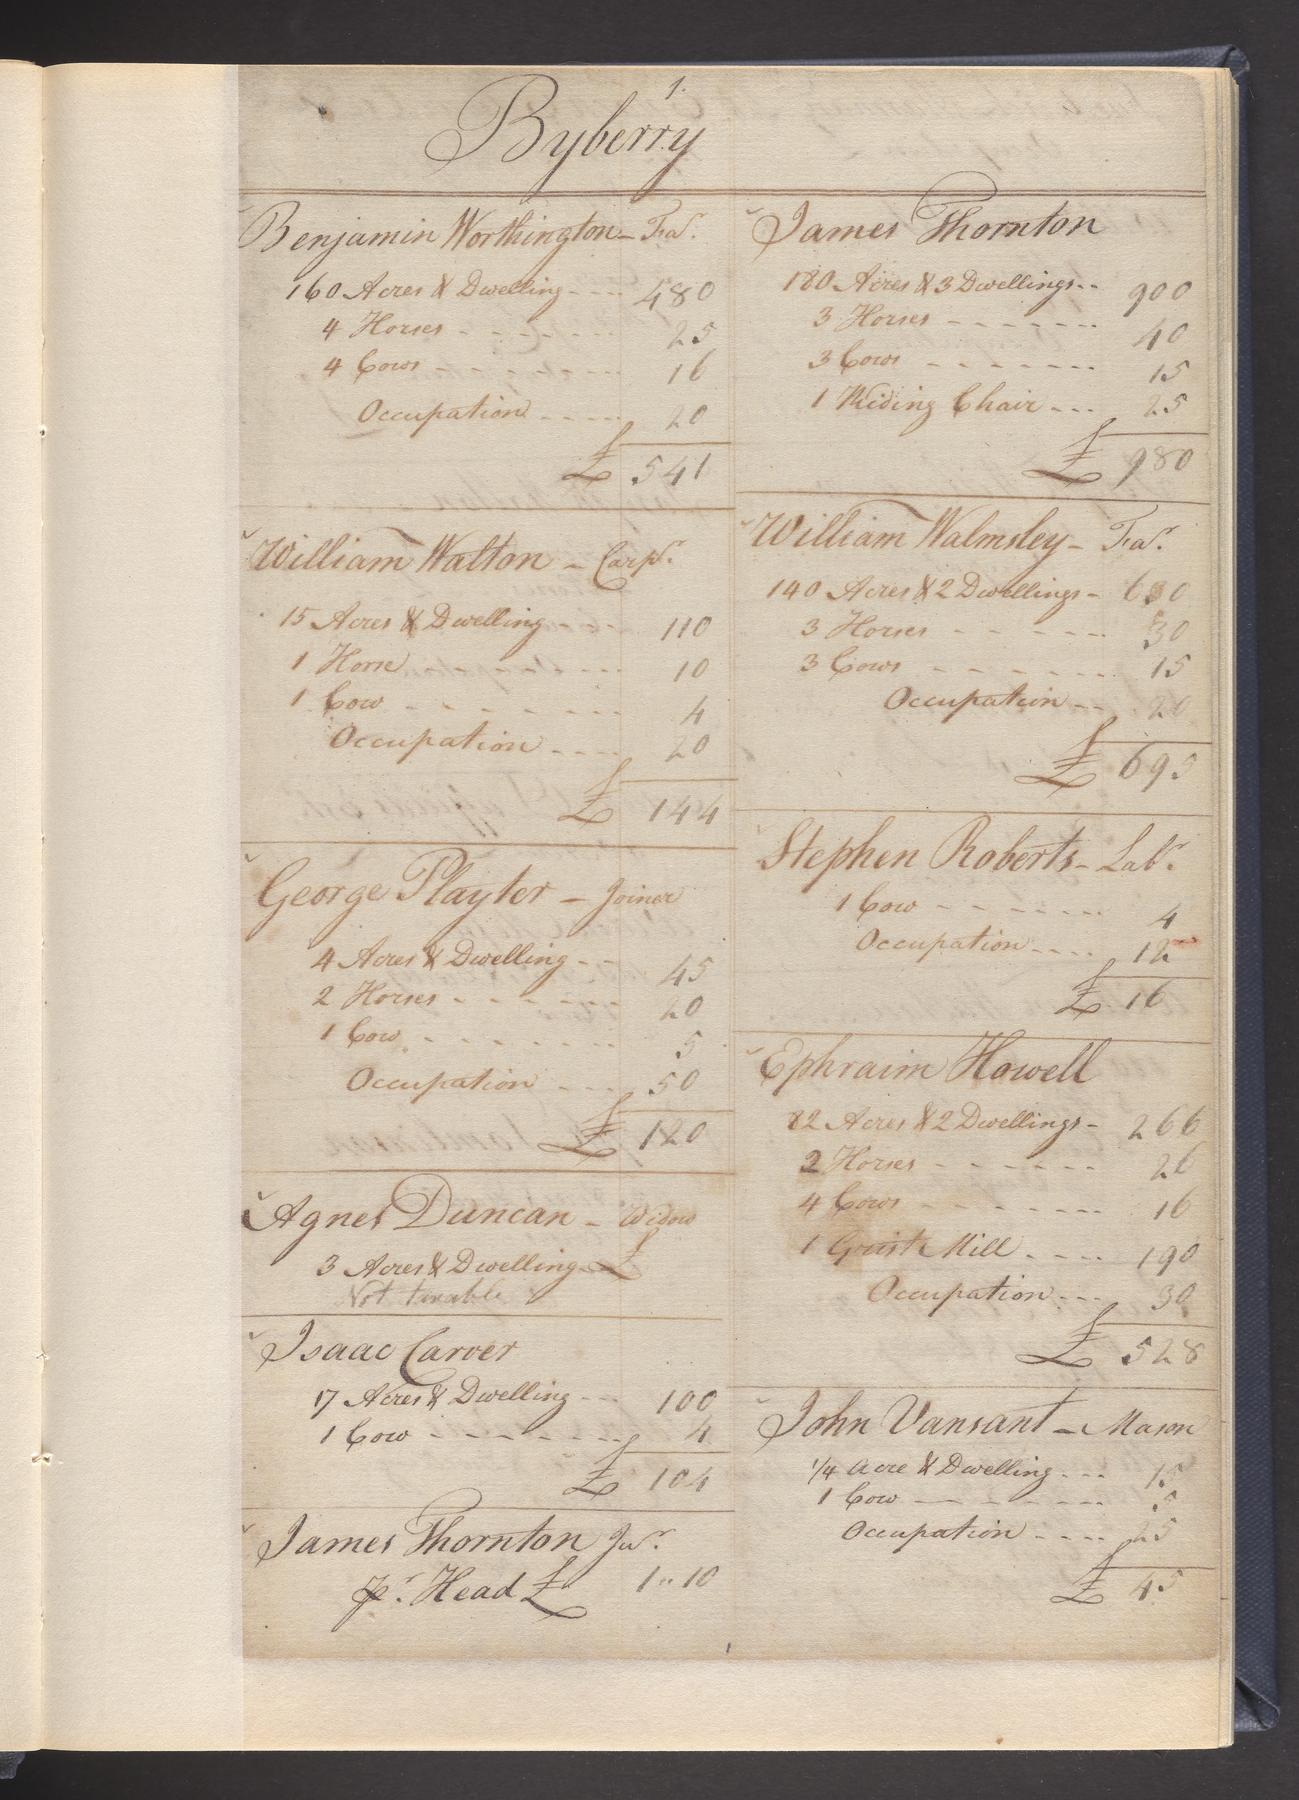 1.
Byberry
Benjamin Worthington – Far.
160 Acres & Dwelling - - - - 480
4 Horses - - - - - - 25
4 Cows - - - - - - - 16
Occupation - - - - - 20
£ 541
William Walton – Carpr.
15 Acres & Dwelling - - - - 110
1 Horse - - - - 10
1 Cow - - - - - - - 4
Occupation - - - - 20
£ 144
George Playter – Joiner
4 Acres & Dwelling - - 45
2 Horses - - - - - - 20
1 Cow - - - - - - - 5
Occupation - - - - 50
£ 120
Agnes Duncan – Widow
3 Acres & Dwelling £
Not taxable
Isaac Carver
17 Acres & Dwelling - - - 100
1 Cow - - - - - - - 4
£ 104
James Thornton Jur.
pr. Head £ 1 " 10
James Thornton
180 Acres & 3 Dwellings - - 900
3 Horses - - - - - - 40
3 Cows - - - - - - - 15
1 Riding Chair - - - 25
£ 980
William Walmsley – Far.
140 Acres & 2 Dwellings - 630
3 Horses - - - - - - 30
3 Cows - - - - - - - 15
Occupation - - - 20
£ 695
Stephen Roberts – Labr.
1 Cow - - - - - - - 4
Occupation - - - - 12
£ 16
Ephraim Howell
82 Acres & 2 Dwellings - 266
2 Horses - - - - - - 26
4 Cows - - - - - - - 16
1 Grist Mill - - - - 190
Occupation - - - 30
£ 528
John Vansant – Mason
1/4 Acre & Dwelling - - - 15
1 Cow - - - - - - - 5
Occupation - - - - 25
£ 45